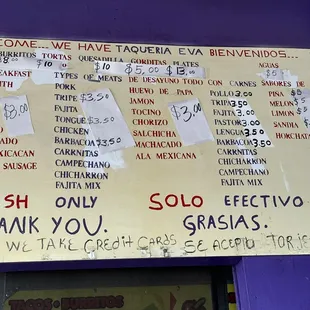 OME... WE HAVE TAQUERIA EVA BIENVENIDOS...
BURRITOS TORTAS QUESADILLAS GORDITAS PLATES AGUAS
$10 $5.00 $13.00
AKFAST WITH TYPES OF MEATS DE DESAYUNO TODO CON CARNES SABORES DE
PORK
TRIPE $3.50
FAJITA
TONGUE $3.50
CHICKEN
BARBACOA $3.50
CARNITAS
CAMPECHANO
CHICHARRON
FAJITA MIX
$3.00
MEXICAN
SAUSAGE
HUEVO DE PAPA
JAMON
TOCINO
CHORIZO
SALCHICHA
MACHACADO
ALA MEXICANA
$3.00
POLLO
TRIPA 3.50
FAJITA
PASTOR
LENGUA 3.50
BARBACOA 3.50
CARNITAS
CHICHARRON
CAMPECHANO
FAJITA MIX
PIÑA
MELON
LIMON
SANDIA
HORCHATA
SH ONLY SOLO EFECTIVO
ANK YOU. GRASIAS.
WE TAKE CREDIT CARDS SE ACEPTO TARJE
TACOS BURRITOS